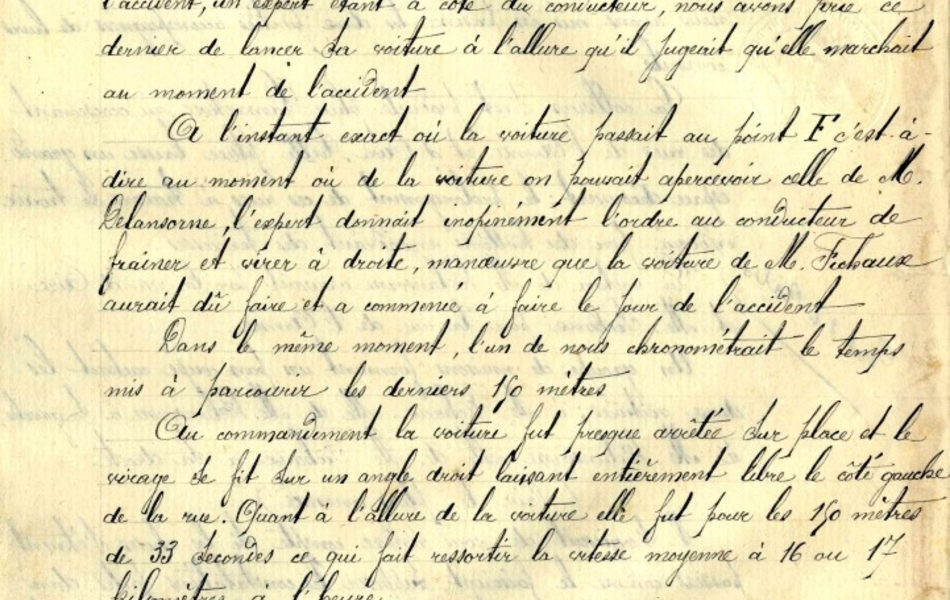 l'accident, un expert étant à côté du conducteur, nous avons prié ce
dernier de lancer sa voiture à l'allure qu'il jugeait qu'elle marchait
au moment de l'accident
A l'instant exact où la voiture passait au point F c'est-à-
dire au moment où de la voiture on pouvait apercevoir celle de M.
Delansorne, l'expert donnait inopinément l'ordre au conducteur de
frainer et virer à droite, manœuvre que la voiture de M. Fichaux
aurait dû faire et a commencé à faire le jour de l'accident
Dans le même moment, l'un de nous chronometrait le temps
mis à parcourir les derniers 150 mètres
Au commandement la voiture fut presque arrêtée sur place et le
virage se fit sur un angle droit laissant entièrement libre le côté gauche
de la rue. Quant à l'allure de la voiture elle fut pour les 150 mètres
de 33 secondes ce qui fait ressortir la vitesse moyenne à 16 ou 17
kilomètres à l'heure